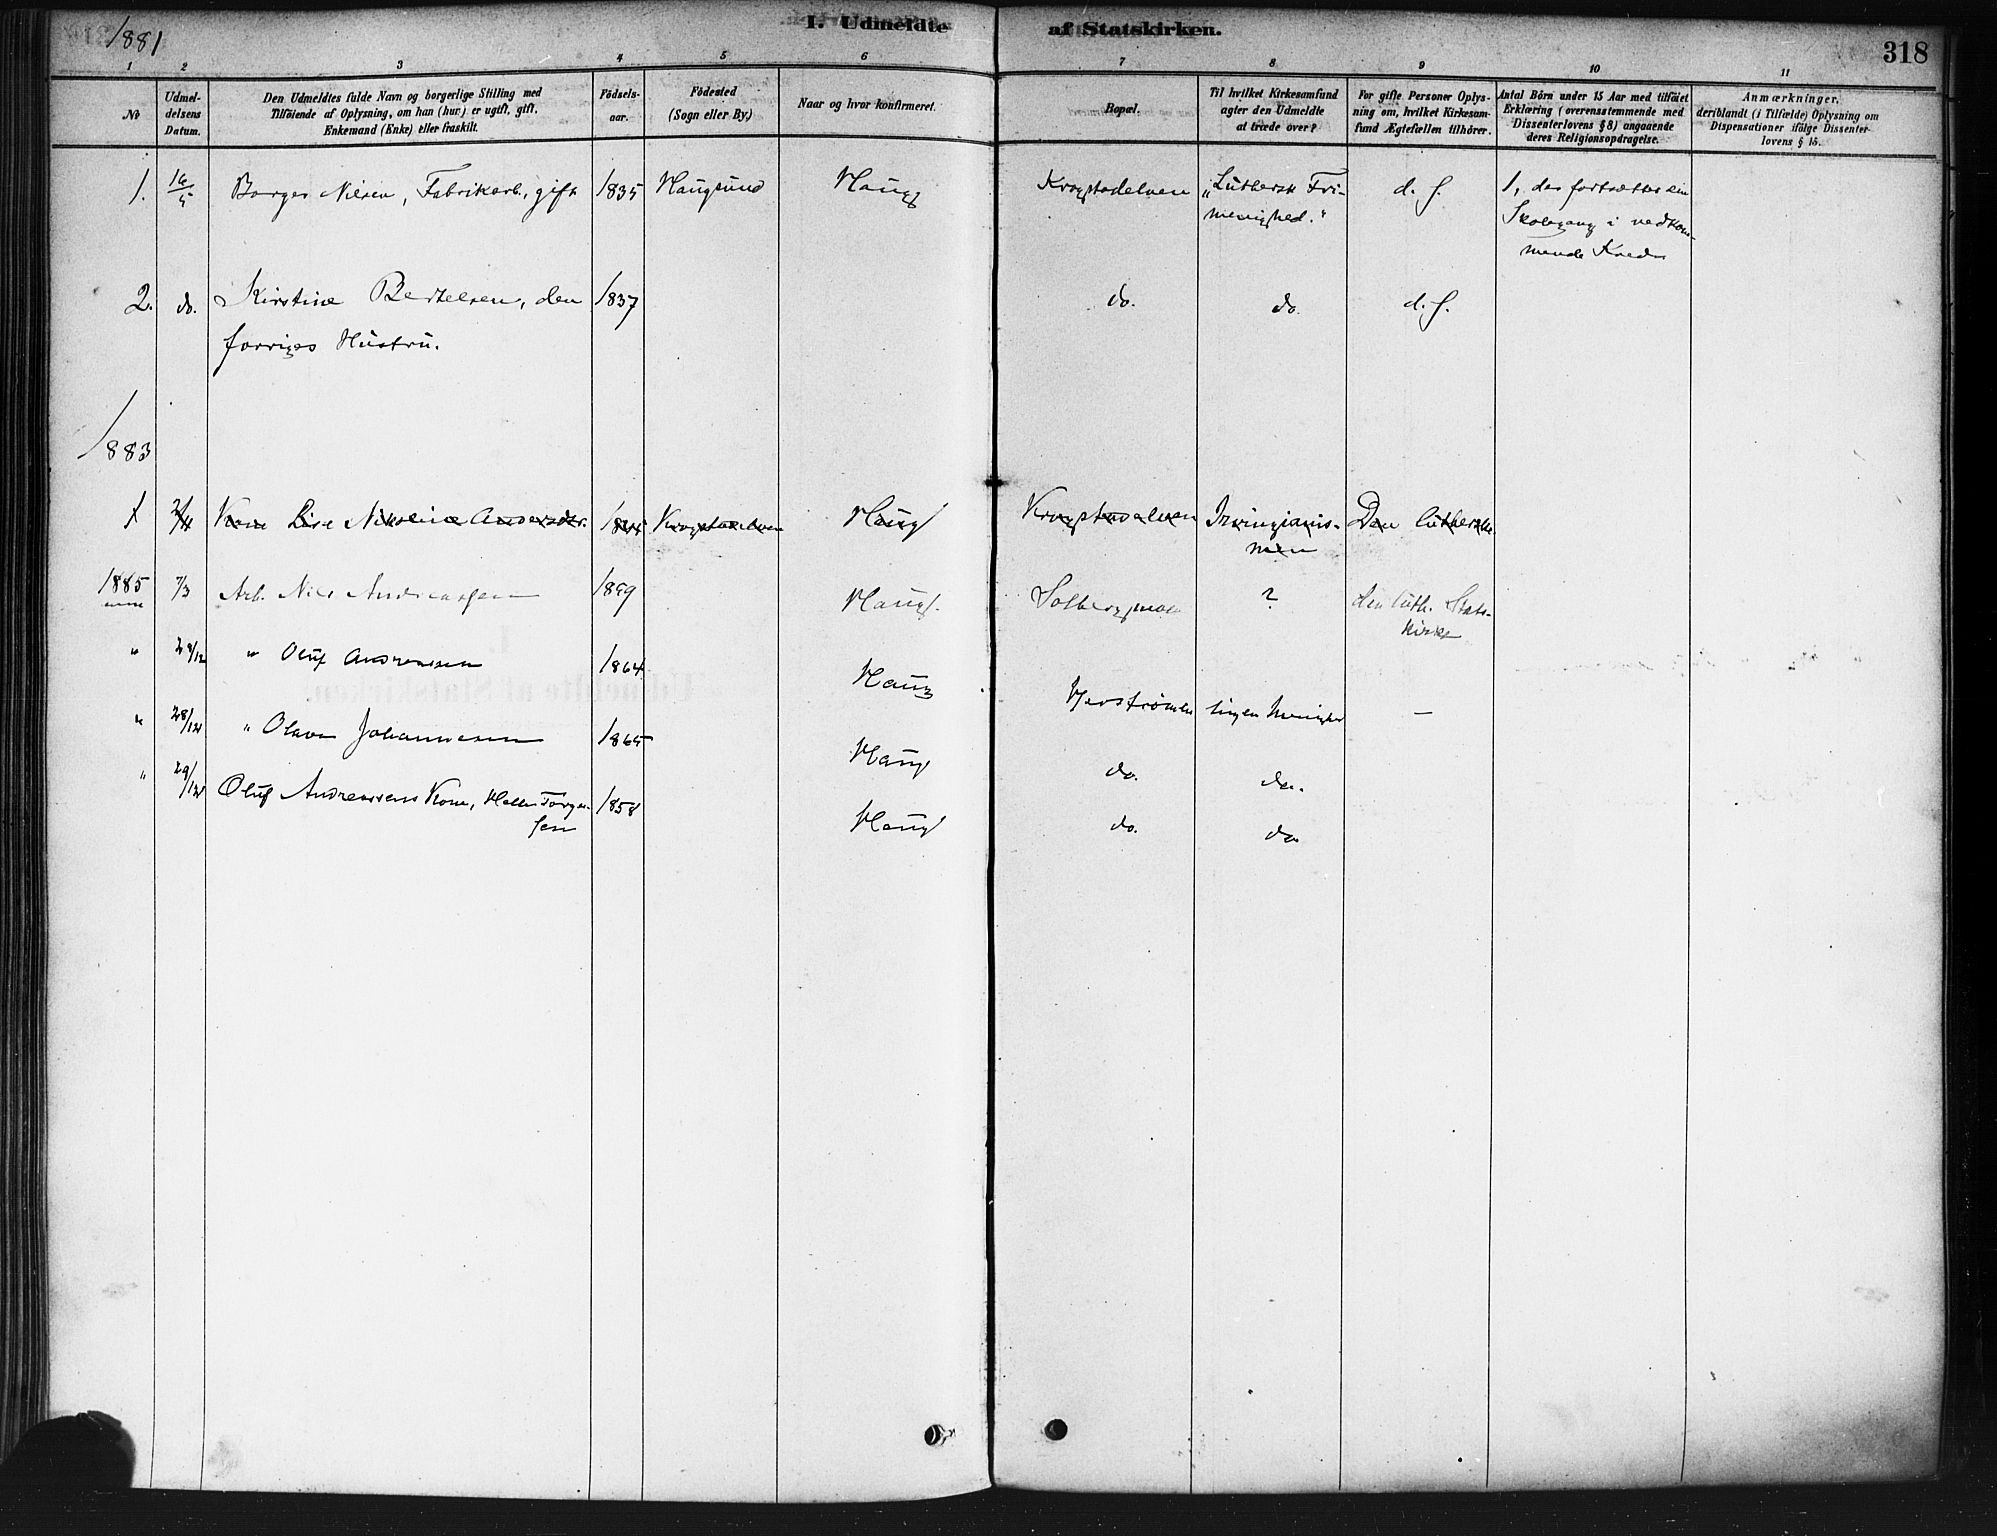 1881
I. Udmeldte af Statskirken.
318
1 2 3 4 5 6 7 8 9 10 11
No
Udmel-
delsens
Datum.
Den Udmeldtes fulde Navn og borgerlige Stilling med
Tilföiende af Oplysning, om han (hun) er ugift, gift,
Enkemand (Enke) eller fraskilt.
Födsels-
aar.
Födested
(Sogn eller By.)
Naar og hvor konfirmeret.
Bopæl.
Til hvilket Kirkesamfund
agter den Udmeldte
at træde over?
For gifte Personer Oplys-
ning om, hvilket Kirkesam-
fund Ægtefællen tilhörer.
Antal Börn under 15 Aar med tilföiet
Erklæring (overensstemmende med
Dissenterlovens § 8) angaaende
deres Religionsopdragelse.
Anmærkninger,
deriblandt (i Tilfælde) Oplysning om
Dispensationer ifölge Dissenter-
lovens § 15.
1. 16/5 Borger Nilsen, Fabrikarb., gift 1835 Haugsund Haug Krogstadelven "Luthersk Fri-
menighed." d. s. 1, der fortsætter sin
Skolegang i vedkom-
mende Kreds
2. do. Kirstine Bertelsen, den 1837 do. do d. s.
forriges Hustru.
1883
1 2/4 Kone Lise Nikoline Andersdr. Krogstadelven Haug Krogstadelven Irvingianis-
men Den lutherske
1885 7/3 Arb. Nils Andreassen 1859 Haug. Solbergmoen ? den luth. Stats-
kirke
" 29/12 " Oluf Andreassen 1864 Haug ingen Menighed —
" 28/12 " Olava Johannesen 1865 Haug do. do.
" 29/12 Oluf Andreassens Kone, 1858 Haug do. do
sen